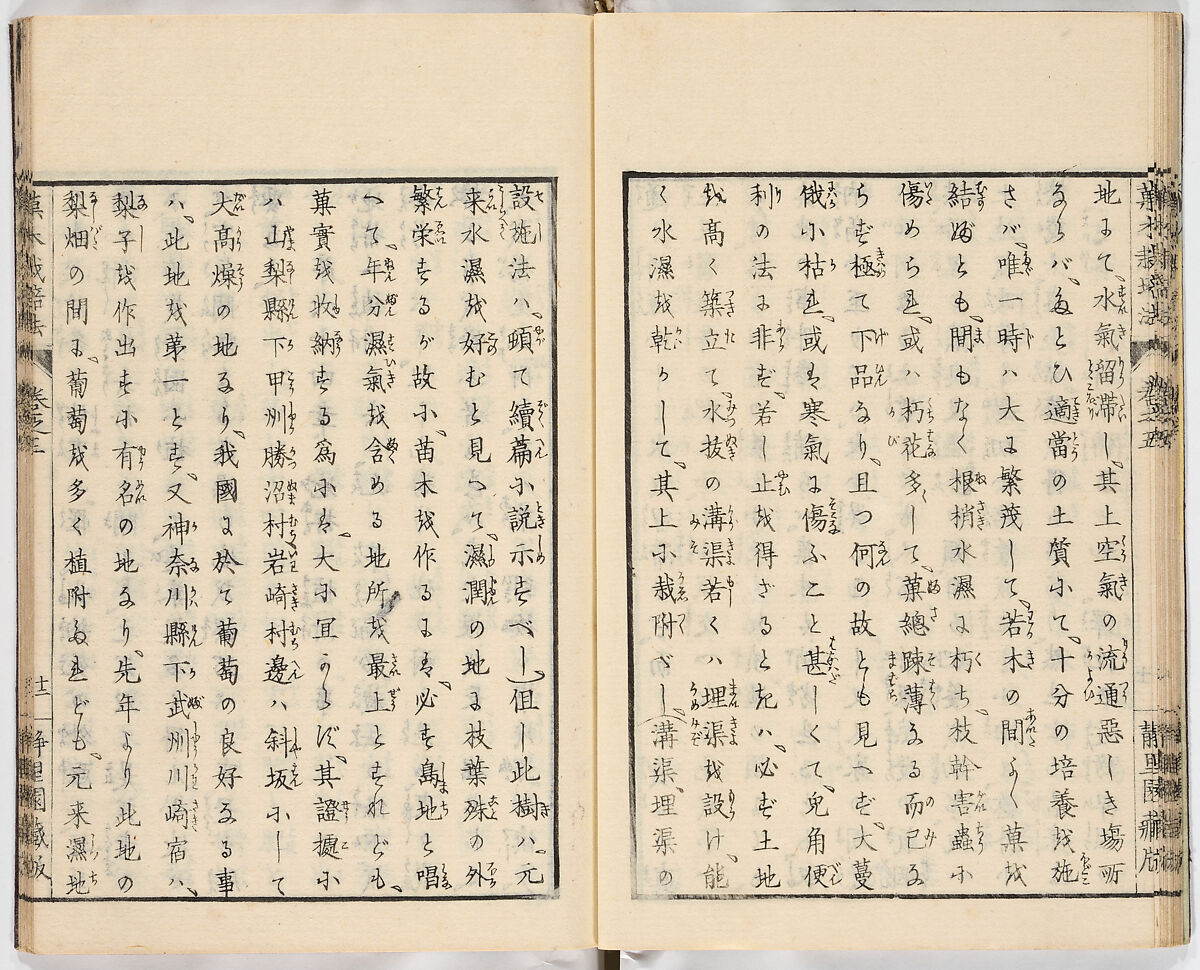 菓木栽培法　卷之五
地にて、水氣留滯し、其上空氣の流通惡しき塲所
ならバ、たとひ適當の土質にて、十分の培養を施
さバ、唯一時ハ大に繁茂して、若木の間よく菓を
結ぶとも、間もなく根梢水濕に朽ち、枝幹害蟲に
傷められ、或ハ朽花多くして、菓總疎薄なる而已な
らず、極て下品なり、且つ何の故とも見へず、大蔓
俄に枯れ、或は寒氣に傷ふこと甚しくて、兎角便
利の法に非ず、若し止を得ざるときハ、必ず土地
を高く築立て、水抜の溝渠若くハ埋渠を設け、能
く水濕を乾かして、其上に栽附べし、(溝渠、埋渠の
靜里園藏版
設施法ハ、頓て續篇に説示すべし)但し此樹ハ、元
来水濕を好むと見へて、濕潤の地に枝葉殊の外
繁栄するが故に、苗木を作るには、必ず島地と唱
へて、年分濕氣を含める地所を最上とすれども、
菓實を收納する爲には、大に宜からず、其證據に
ハ山梨縣下甲州勝沼村岩崎村邊ハ斜坂にして
大高燥の地なり、我國に於て葡萄の良好なる事
ハ、此地を第一とす、又神奈川縣下武州川崎宿ハ、
梨子を作出すに有名の地なり、先年より此地の
梨畑の間に、葡萄を多く植附たれども、元来濕地
菓木栽培法　卷之五
十二
靜里園藏版